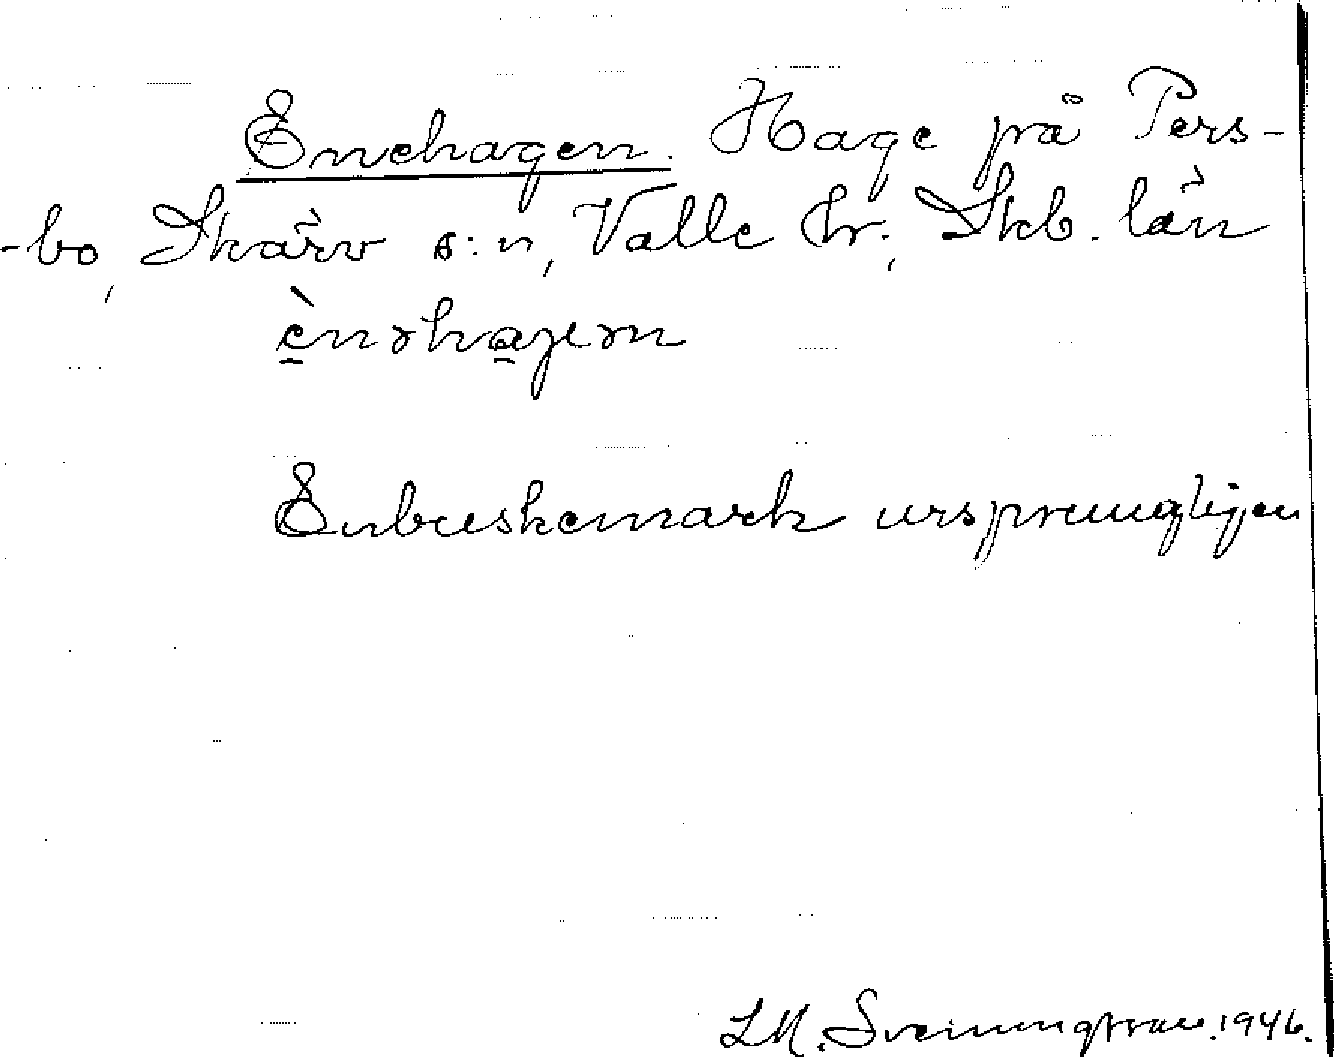 Enehagen. Hage på Pers-
-bo, Skärv s:n, Valle hr, Skb. län
ènəhagəm
Enbuskemark ursprungligen
LM. Sveningsson. 1946.